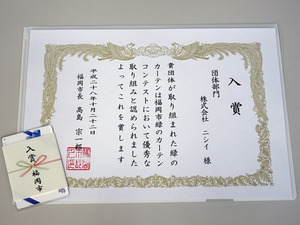 入賞
団体部門
株式会社 ニシイ 様
貴団体が取り組まれた緑の
カーテンは福岡市緑のカーテン
コンテストにおいて優秀な
取り組みと認められました
よってこれを賞します
平成二十八年十月二十二日
福岡市長 高島 宗一郎
入賞
福岡市